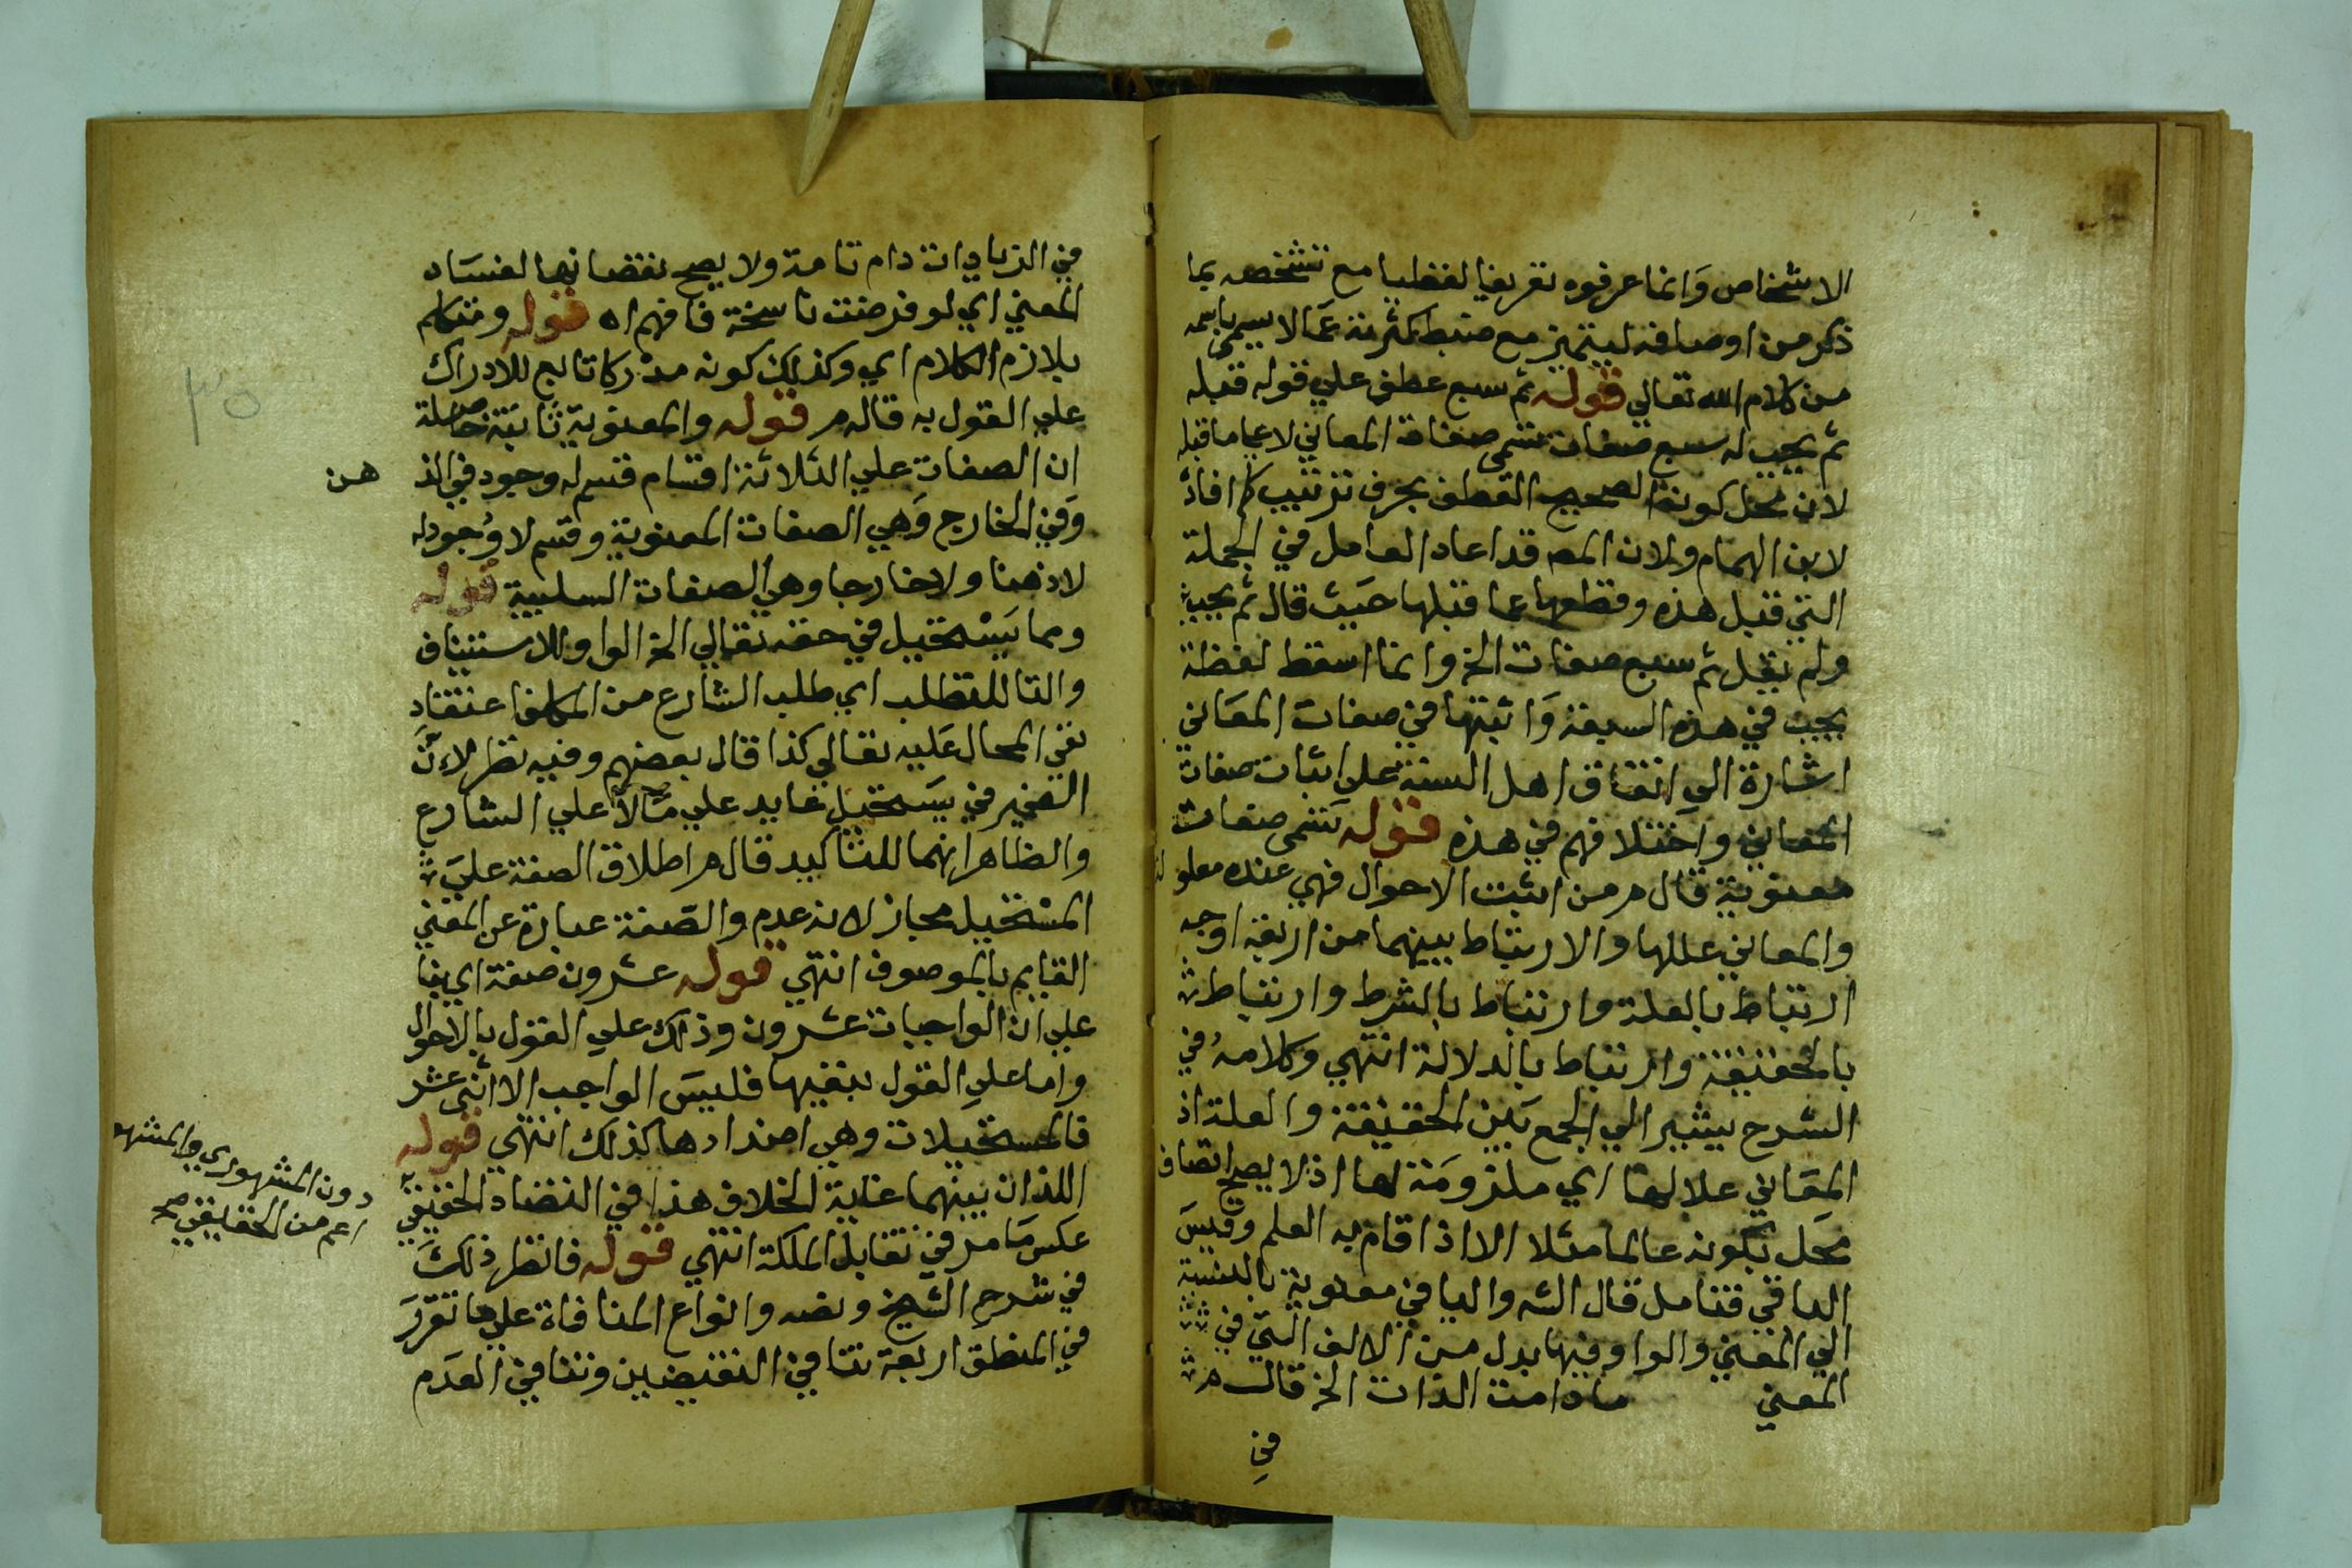 الاشخاص وانما عرفوه تعريفا لفظيا مع تشخصه بما
ذكر من اوصافه ليتميز مع ضبط كثرته عما لا يسمى باسمه
من كلام الله تعالي قوله ثم سبع عطف علي قوله قبله
ثم يجب له سبع صفات تسمى صفات المعاني لا عما ما قبله
لان محل كونه الصحيح العطف بحرف ترتيب كما افاد
لابن الهمام ولان المص قد اعاد العامل في الجملة
التي قبل هذه وقطعها عما قبلها حيث قال ثم يجب
ولم يقل ثم سبع صفات الخ وانما اسقط لفظة
يجب في هذه السبعة واثبتها في صفات المعاني
اشارة الي اتفاق اهل السنة علي اثبات صفات
المعاني واختلافهم في هذه قوله تسمى صفات
معنوية قال م من اثبت الاحوال فهي عنده معلو لة
والمعاني عللها والارتباط بينهما من اربعة اوجه
ارتباط بالعلة وارتباط بالشرط وارتباط
بالحقيقة وارتباط بالدلالة انتهي وكلامه في
الشرح يشير الي الجمع بين الحقيقة والعلة اذ
المعاني علا لها اي ملزومة لها اذ لا يصح اتصاف
محل بكونه عالما مثلا الا اذا قام به العلم وقيس
الباقي فتامل قال الش واليا في معنوية بالنسبة
الي المعني والواو فيها بدل من الالف التي في
المعني ما دامت الذات الخ قال م
في
في الزيادات دام تامة ولا يصح نقصانها لفساد
المعني اي لو فرضت ناسخة فافهم اه قوله ومتكلم
يلازم الكلام اي وكذلك كونه مدركا تابع للادراك
علي القول به قاله م قوله والمعنوية ثابتة حاصله
ان الصفات علي الثلاثة اقسام قسم له وجود في الذ
هن
وفي الخارج وهي الصفات المعنوية وقسم لا وجود له
لا ذهنا ولا خارجا وهي الصفات السلبية قوله
ومما يستحيل في حقه تعالي الخ الواو للاستيناف
والتا للطلب اي طلب الشارع من المكلف اعتقاد
نفي المحال عليه تعالي كذا قال بعضهم وفيه نظر لان
الضمير في يستحيل عايد علي ما لا علي الشارع
والظاهر انهما للتاكيد قال م اطلاق الصفة علي
المستحيل مجاز لانه عدم والصفة عبارة عن المعني
القايم بالموصوف انتهي قوله عشرون صفة اي بنا
علي ان الواجبات عشرون وذلك علي القول بالاحوال
واما علي القول بنفيها فليس الواجب الا اثنى عشر
فالمستحيلات وهي اضدادها كذلك انتهي قوله
اللذان بينهما غاية الخلاف هذا في التضاد الحقيقي
دون المشهوري والمشهو
اعم من الحقيقي صح
عكس ما مر في تقابل الملكة انتهي قوله فانظر ذلك
في شرح الشيخ ونصه وانواع المنافاة علي ما تقرر
في المنطق اربعة تنافي النقيضين وتنافي العدم